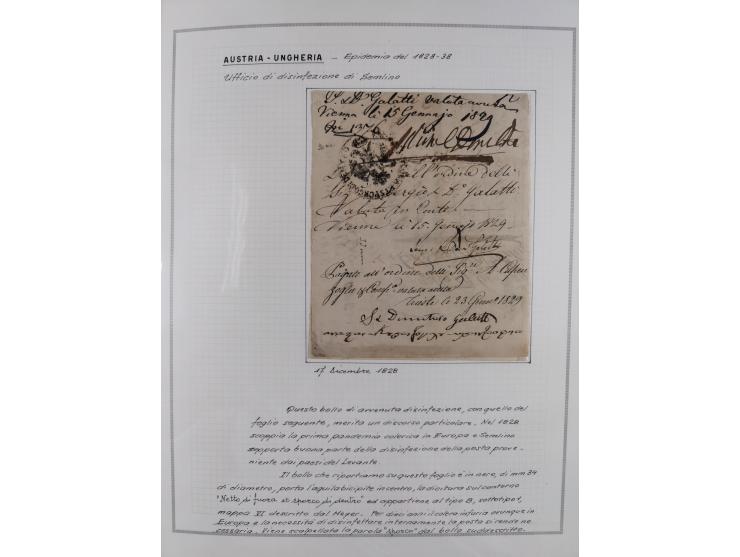 AUSTRIA - UNGHERIA - Epidemia del 1828-38
Ufficio di disinfezione di Semlino
S. & D. Galatti valuta avuta
Vienna li 15 Gennajo 1829
all'ordine delli
Galatti
Valuta in Conto
Vienna li 15. Gennajo 1829
Pagate all'ordine delli Sigri
valuta avuta
Trieste li 23 Genn. 1829
S & Demetrio Galatti
17 Dicembre 1828
Questo bollo di avvenuta disinfezione, con quello del
foglio seguente, merita un discorso particolare. Nel 1828
scoppia la prima pandemia colerica in Europa e Semlino
sopporta buona parte della disinfezione della posta prove-
niente dai paesi del Levante.
Il bollo che riportiamo su questo foglio è in nero, di mm 34
di diametro, porta l'aquila bicipite in centro, la dicitura sul contorno
"Netto di fuora et sporco di dentro" ed appartiene al tipo B, sottotipo 1,
mappa VI descritto dal Meyer. Per dieci anni il colera infuria ovunque in
Europa e la necessità di disinfettare internamente la posta si rende ne-
cessaria. Viene scalpellata la parola "sporco" dal bollo sudescritto.